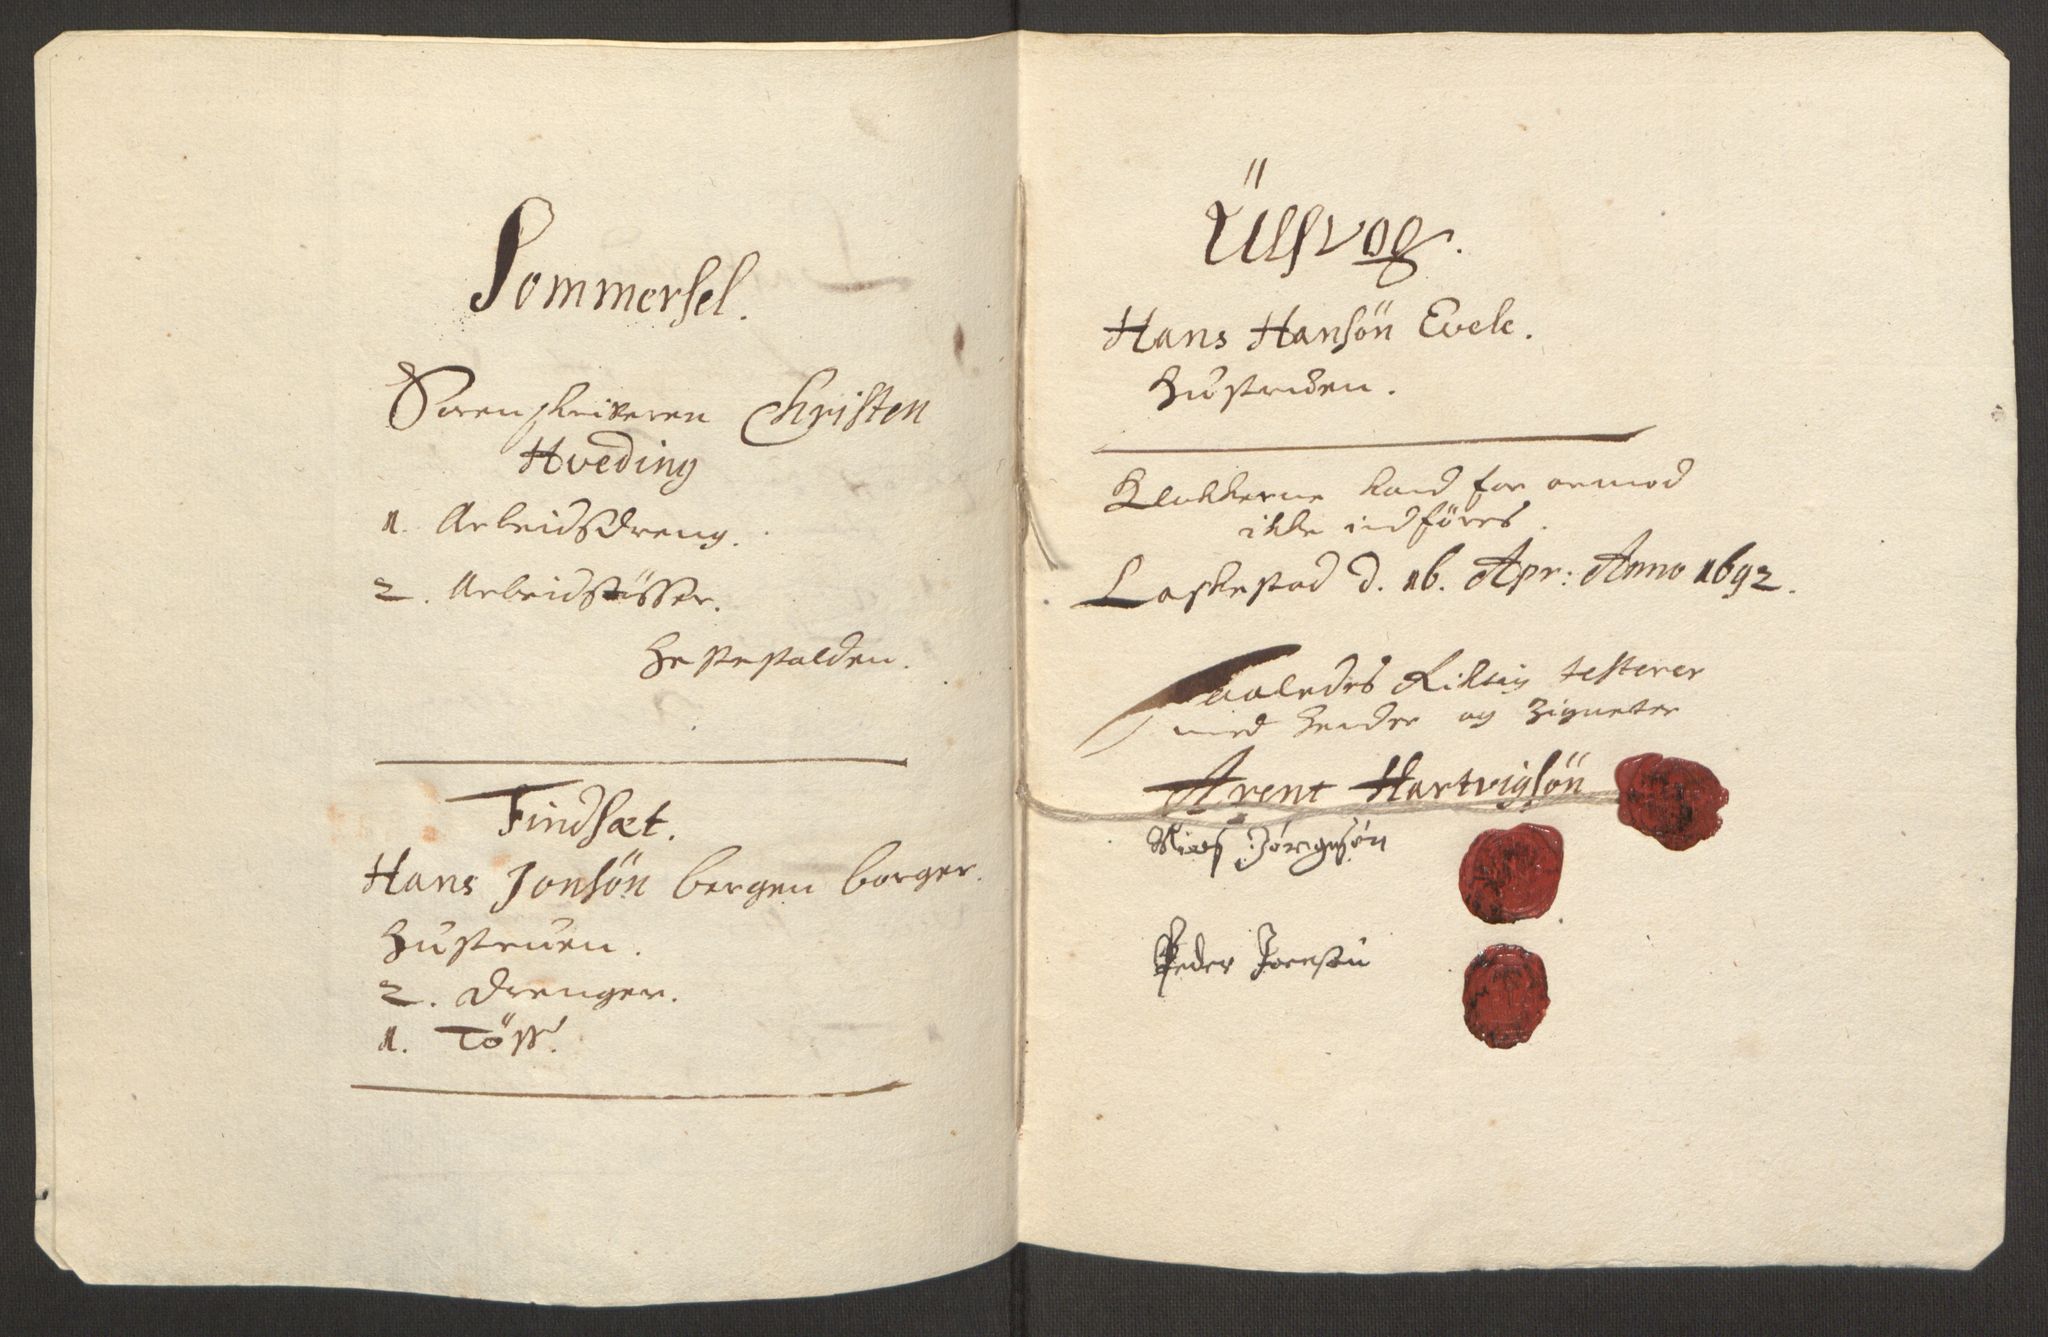 Sommersel.
Sorenskriveren Christen
Hveding
1. Arbeidsdreng.
2. Arbeidstösser.
Hestestalden.
Findsæt.
Hans Jonsön bergen borger.
Hustruen.
2. drenger.
1. Töss.
Ülsvog.
Hans Hansön Evele.
Hustruen.
Klokkerne kand for armod
ikke indföres.
Laskestad d. 16. Apr: Anno 1692.
Saaledes Riktig testerer
med hender og Zigneter
Arent Hartvigsön
Niels Jörgensön
Peder Joensön